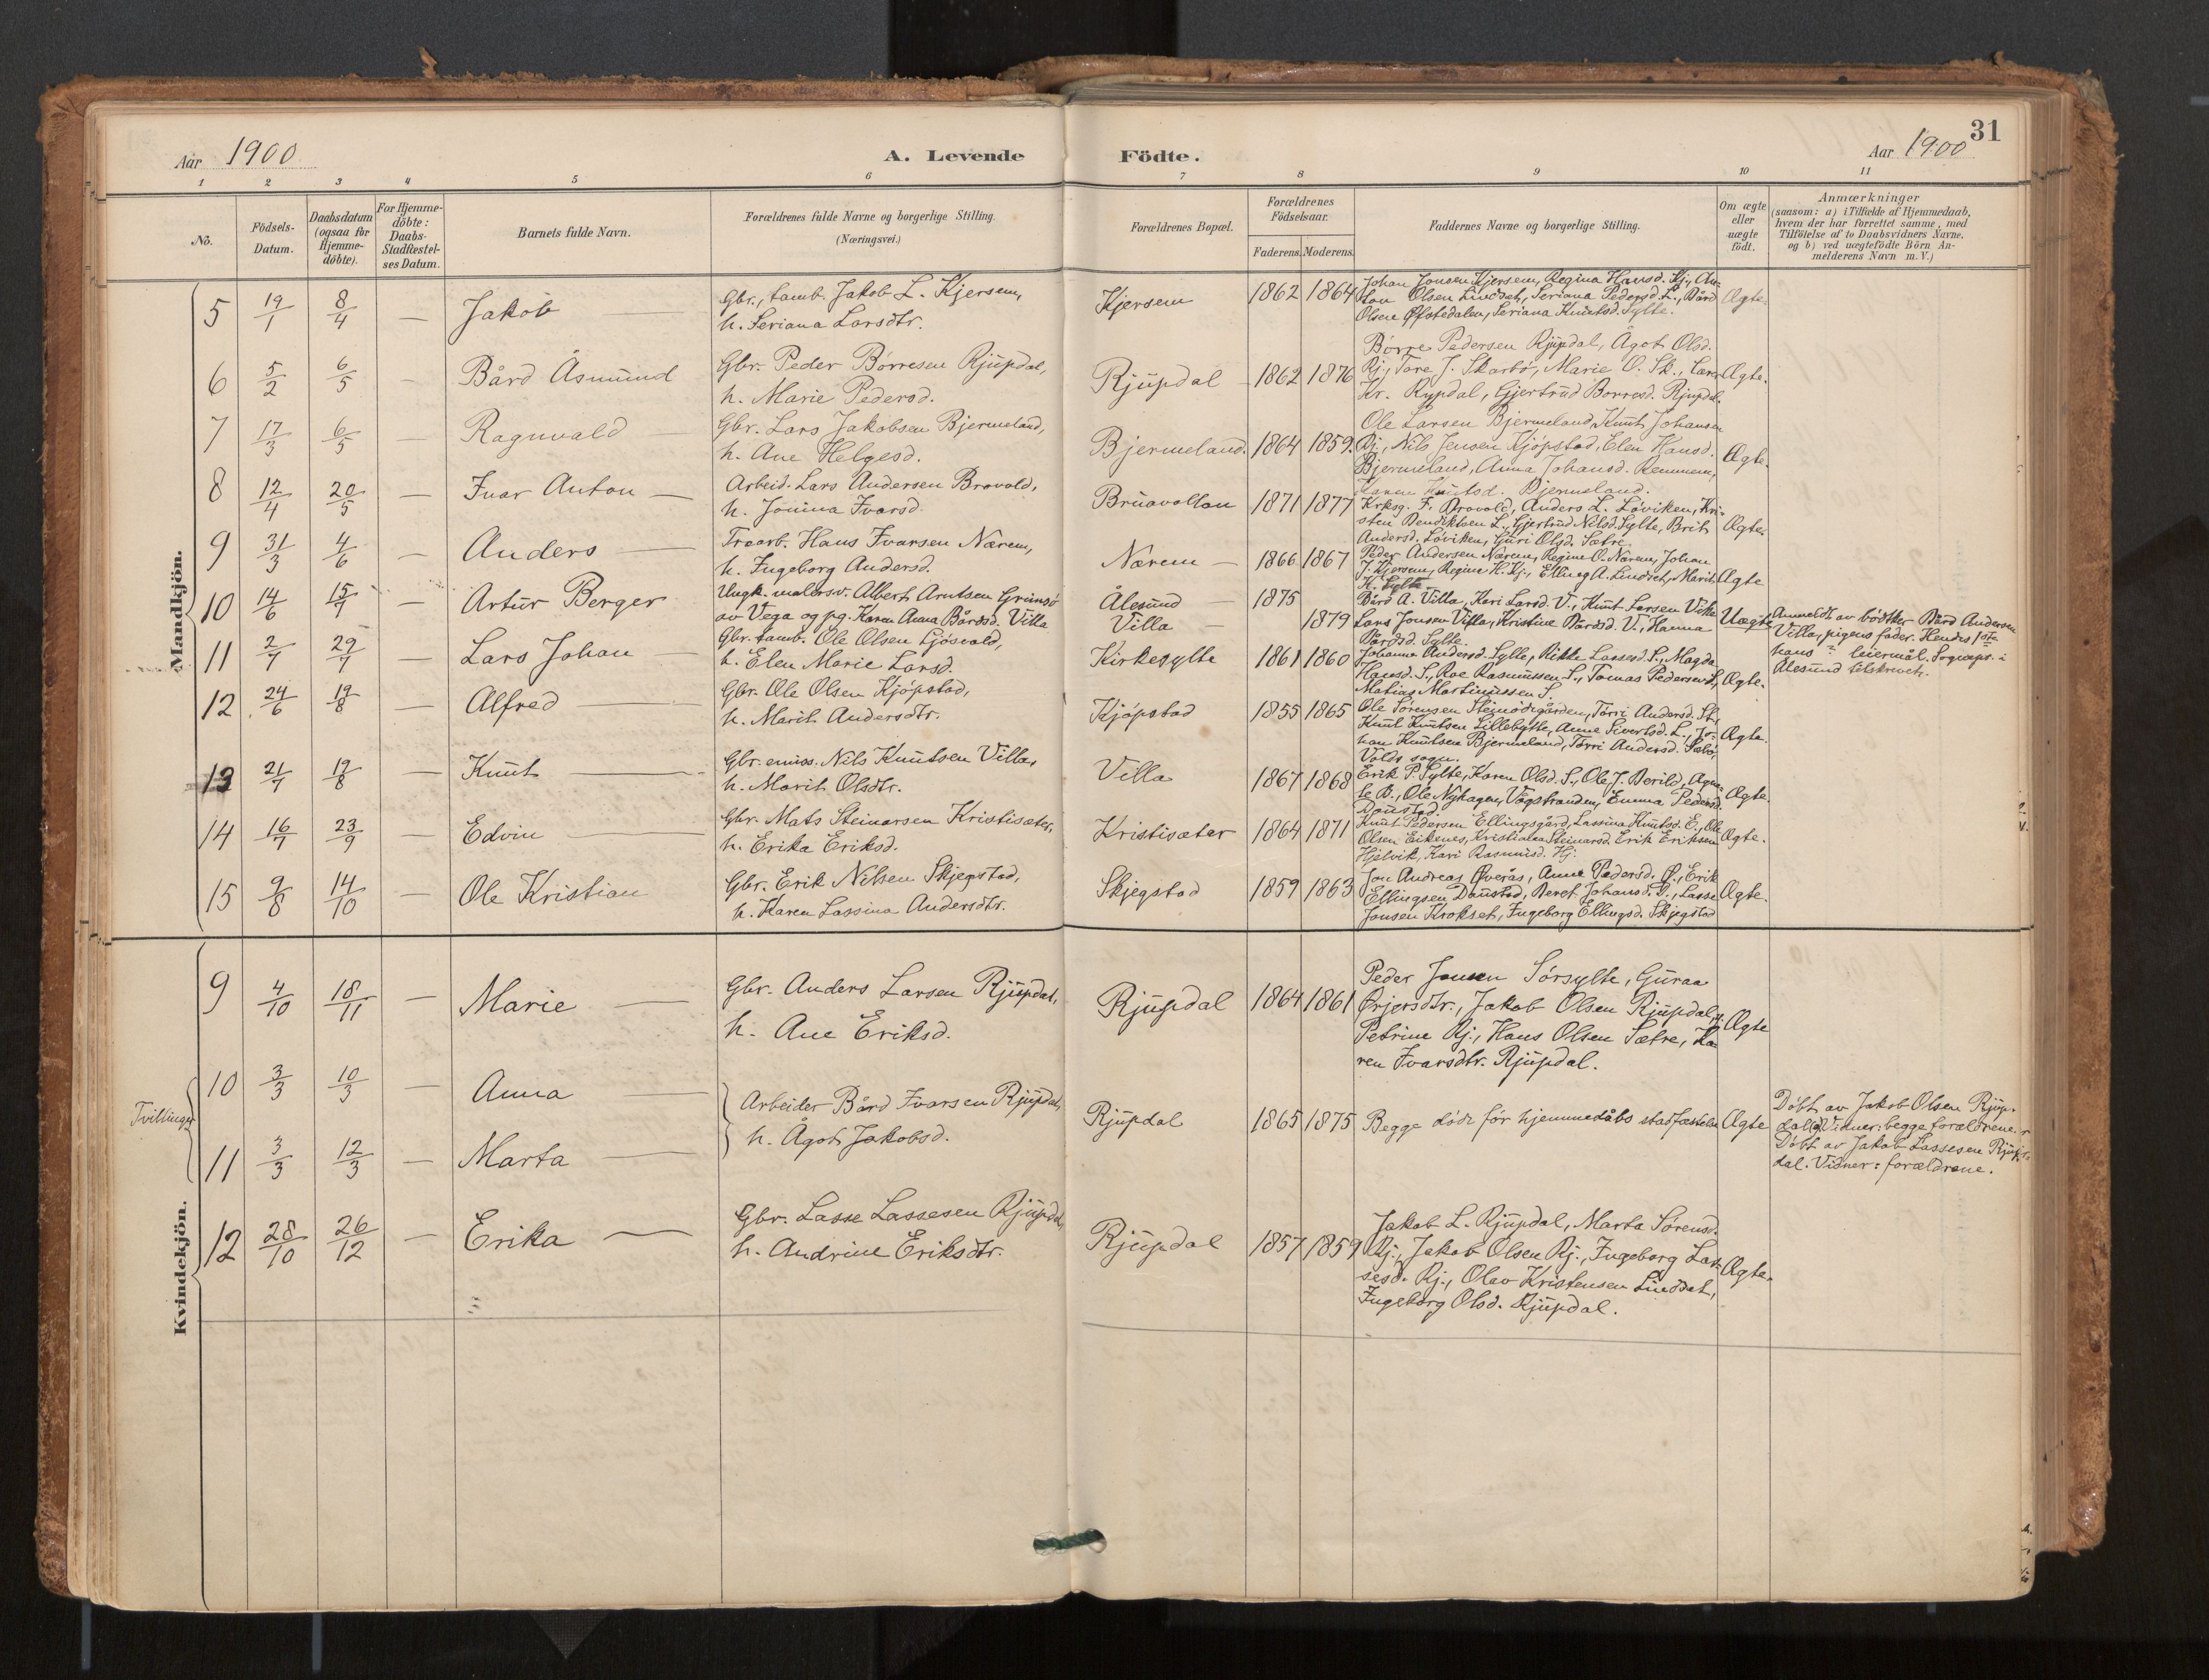 Aar 1900
A. Levende Fødte.
31
Aar 1900
1 2 3 4 5 6 7 8 9 10 11
No.
Fødsels-Datum.
Daabsdatum (ogsaa for Hjemme-døbte).
For Hjemme-døbte: Daabs-Stadfæstel-ses Datum.
Barnets fulde Navn.
Forældrenes fulde Navne og borgerlige Stilling.
(Næringsvei.)
Forældrenes Bopæl.
Forældrenes Fødselsaar.
Faderens. Moderens.
Faddernes Navne og borgerlige Stilling.
Om ægte eller uægte født.
Anmærkninger
(saasom: a) i Tilfælde af Hjemmedaab,
hvem der har forrettet samme, med
Tilføielse af to Daabsvidners Navne.
og b) ved uægtefødte Børn An-
melderens Navn m. V.)
Mandkjøn.
5 19/1 8/4 — Jakob — Gbr., tømb. Jakob L. Kjersem,
h. Seriana Larsdtr.
Kjersem 1862 1864
Johan Jonsen Kjersem, Regina Hansd. Kj., An-
ton Olsen Lindset, Seriana Pedersd. L., Bård
Olsen Øfstedalen, Seriana Knutsd. Sylte.
Ægte.
6 5/2 6/5 — Bård Åsmund
Gbr. Peder Børresen Rjupdal,
h. Marie Pedersd.
Rjupdal 1862 1876
Børre Pedersen Rjupdal, Ågot Olsd.
Rj., Tore J. Skarbø, Marie O. Sk., Lærer
Kr. Rypdal, Gjertrud Borresd. Rjupdal.
Ægte.
7 17/3 6/5 — Ragnvald
Gbr. Lars Jakobsen Bjermeland,
h. Ane Helgesd.
Bjermeland. 1864 1859.
Ole Larsen Bjermeland, Knut Johansen
Bj., Nils Jensen Kjøpstad, Elen Hansd.
Bjermeland, Anna Johansd. Remmem,
Karen Knutsd. Bjermeland.
Ægte.
8 12/4 20/5 — Ivar Anton —
Arbeid. Lars Andersen Brovold,
h. Jonina Ivarsd.
Bruavollan 1871 1877
Krksg. F. Brovold, Anders L. Løviken, Kri-
sten Bendiktsen L., Gjertrud Nilsd. Sylte, Brit
Andersd. Løviken, Guri Olsd. Sætre.
Ægte.
9 31/3 4/6 — Anders —
Træarb. Hans Ivarsen Nærem,
h. Ingeborg Andersd.
Nærem — 1866 1867
Peder Andersen Nærem, Regine O. Nærem, Johan
J. Kjersem, Regine H. Kj., Elling A. Lindset, Marit
K. Sylte.
Ægte
10 14/6 15/7 — Artur Berger
Ungk. malersv. Albert Arntsen Grimsø
av Vega og pg. Karen Anna Bårdsd. Villa
Ålesund — 1875
Villa — 1879
Bård A. Villa, Kari Larsd. V., Knut Larsen Villa
Lars Jonsen Villa, Kristine Bårdsd. V., Hanna
Bårdsd. Sylte.
Uægte
Anmeldt av bødtker Bård Andersen
Villa, pigens fader. Hendes 1ste
hans leiermål.
Ålesund tilskrevet.
11 2/7 29/7 — Lars Johan —
Gbr. tømb. Ole Olsen Ljøsvold,
h. Elen Marie Larsd.
Kirkesylte 1861 1860
Johanna Andersd. Sylte, Rikke Lassesd. S., Magda
Hansd. S., Roe Rasmussen S., Tomas Pedersen S.,
Matias Martinussen S.
Ægte.
12 24/6 19/8 — Alfred —
Gbr. Ole Olsen Kjøpstad,
h. Marit Andersdtr.
Kjøpstad 1855 1865
Ole Sørensen Steinødegården, Torri Andersd. St.,
Knut Knutsen Lillebytte, Anne Sivertsd. L., Jo-
han Knutsen Bjermeland, Torri Andersd. Sæbø,
Volds sogn.
Ægte.
13 21/7 19/8 — Knut —
Gbr. emiss. Nils Knutsen Villa,
h. Marit Olsdtr.
Villa 1867 1868
Erik P. Sylte, Karen Olsd. S., Ole J. Berild, Agne-
te B., Ole Nyhagen, Vågstranden, Emma Pedersd.
Daustad.
Ægte.
14 16/7 23/9 — Edvin —
Gbr. Mats Steinarsen Kristisæter,
h. Erika Eriksd.
Kristisæter 1864 1871
Knut Pedersen Ellingsgård, Lassina Knutsd. E., Ole
Olsen Eiknes, Kristianna Steinarsd. Erik Eriksen
Hjelvik, Kari Rasmusd. Hj.
Ægte.
15 9/8 14/10 — Ole Kristian
Gbr. Erik Nilsen Skjegstad,
h. Karen Lassina Andersdtr.
Skjegstad 1859 1863
Jon Andreas Øverås, Anne Pedersd. Ø., Erik
Ellingsen Daustad, Beret Johansd. D., Lasse
Jonsen Krokset, Ingeborg Ellingsd. Skjegstad
Ægte.
Kvindekjøn.
9 4/10 18/11 — Marie —
Gbr. Anders Larsen Rjupdal,
h. Ane Eriksd.
Rjupdal 1864 1861
Peder Jonsen Sørsylte, Guraa
Ørjersdtr., Jakob Olsen Rjupdal,
Petrine Rj., Hans Olsen Sætre, Ka-
ren Ivarsdtr. Rjupdal.
Ægte
Tvillinger
10 3/3 10/3 — Anna —
11 3/3 12/3 — Marta —
Arbeider Bård Ivarsen Rjupdal,
h. Ågot Jakobsd.
Rjupdal 1865 1875 Begge døde før hjemmedåbs stadfæstelse Ægte
Døbt av Jakob Olsen Rjup-
dal. Vidner: begge forældrene.
Døbt av Jakob Lassesen Rjup-
dal. Vidner: forældrene.
12 28/10 26/12 — Erika —
Gbr. Lasse Lassesen Rjupdal,
h. Andrine Eriksdtr.
Rjupdal 1857 1859
Jakob L. Rjupdal, Marta Sørensd.
Rj., Jakob Olsen Rj., Ingeborg Las-
sesd. Rj., Olav Kristensen Lindset,
Ingeborg Olsd. Rjupdal.
Ægte.